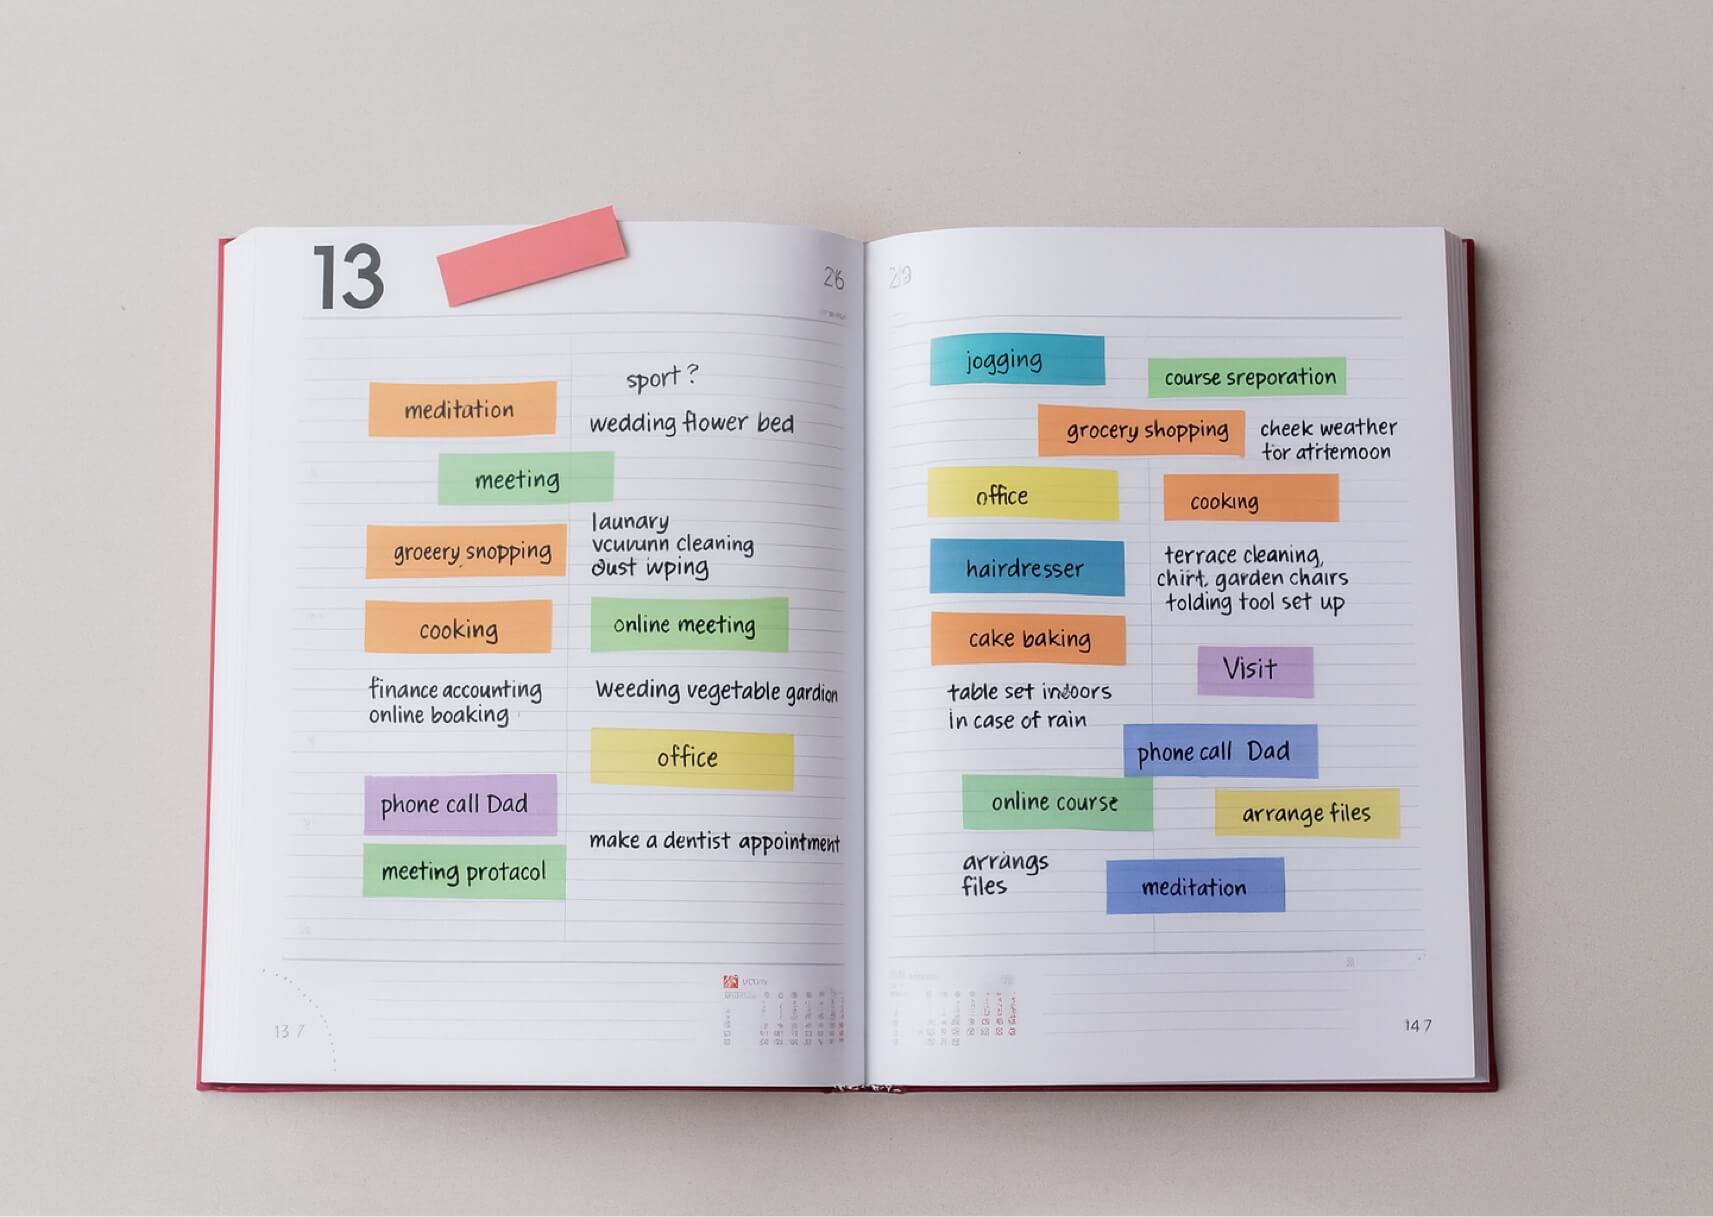 13
26
sport ?
meditation
wedding flower bed
meeting
launary
groeery snopping
vcuvunn cleaning
dust wping
cooking
online meeting
finance accounting
online boaking
Weeding vegetable gardion
office
phone call Dad
make a dentist appointment
meeting protacol
13 7
jogging
course sreporation
grocery shopping
cheek weather
for atrtemoon
office
cooking
hairdresser
terrace cleaning,
chirt, garden chairs
tolding tool set up
cake baking
Visit
table set indoors
in case of rain
phone call Dad
online course
arrange files
arrangs
files
meditation
14 7